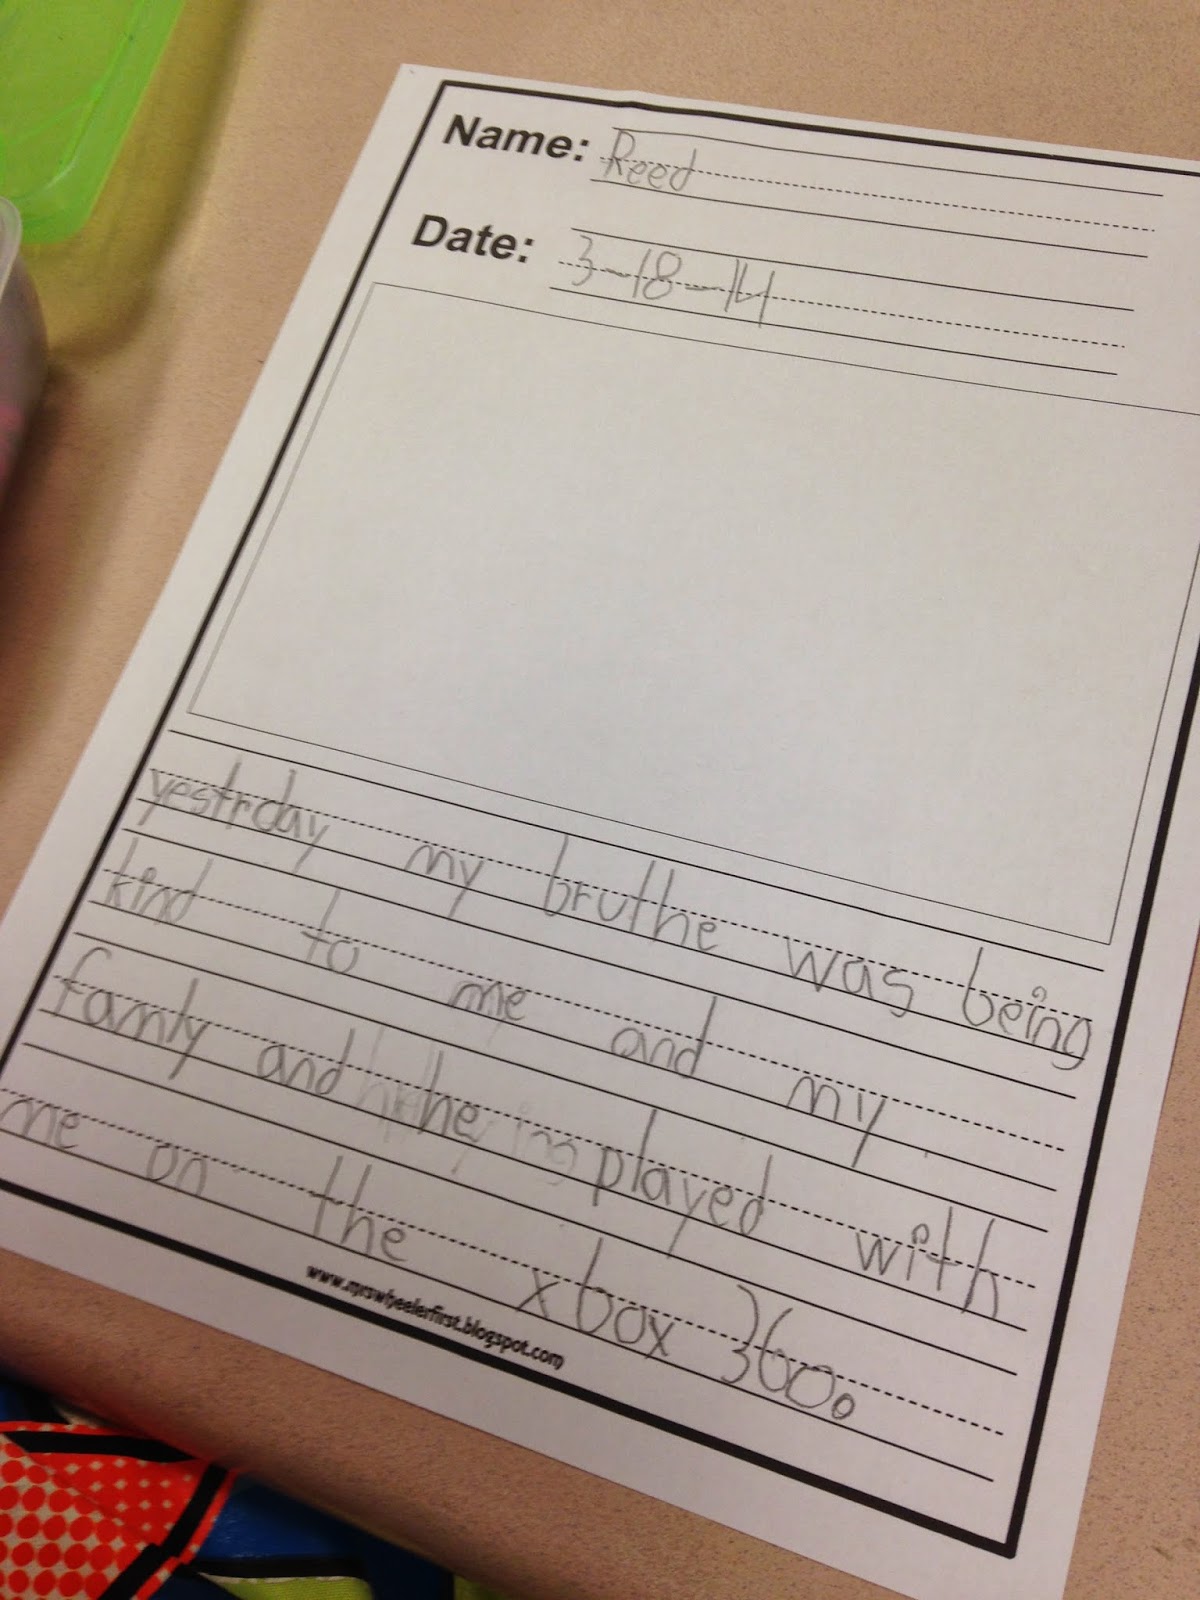 Name: Reed
Date: 3-18-14
yestrday my bruthe was being
kind to me and my
famly and he played with
me on the xbox 360.
www.mrswheelerfirst.blogspot.com